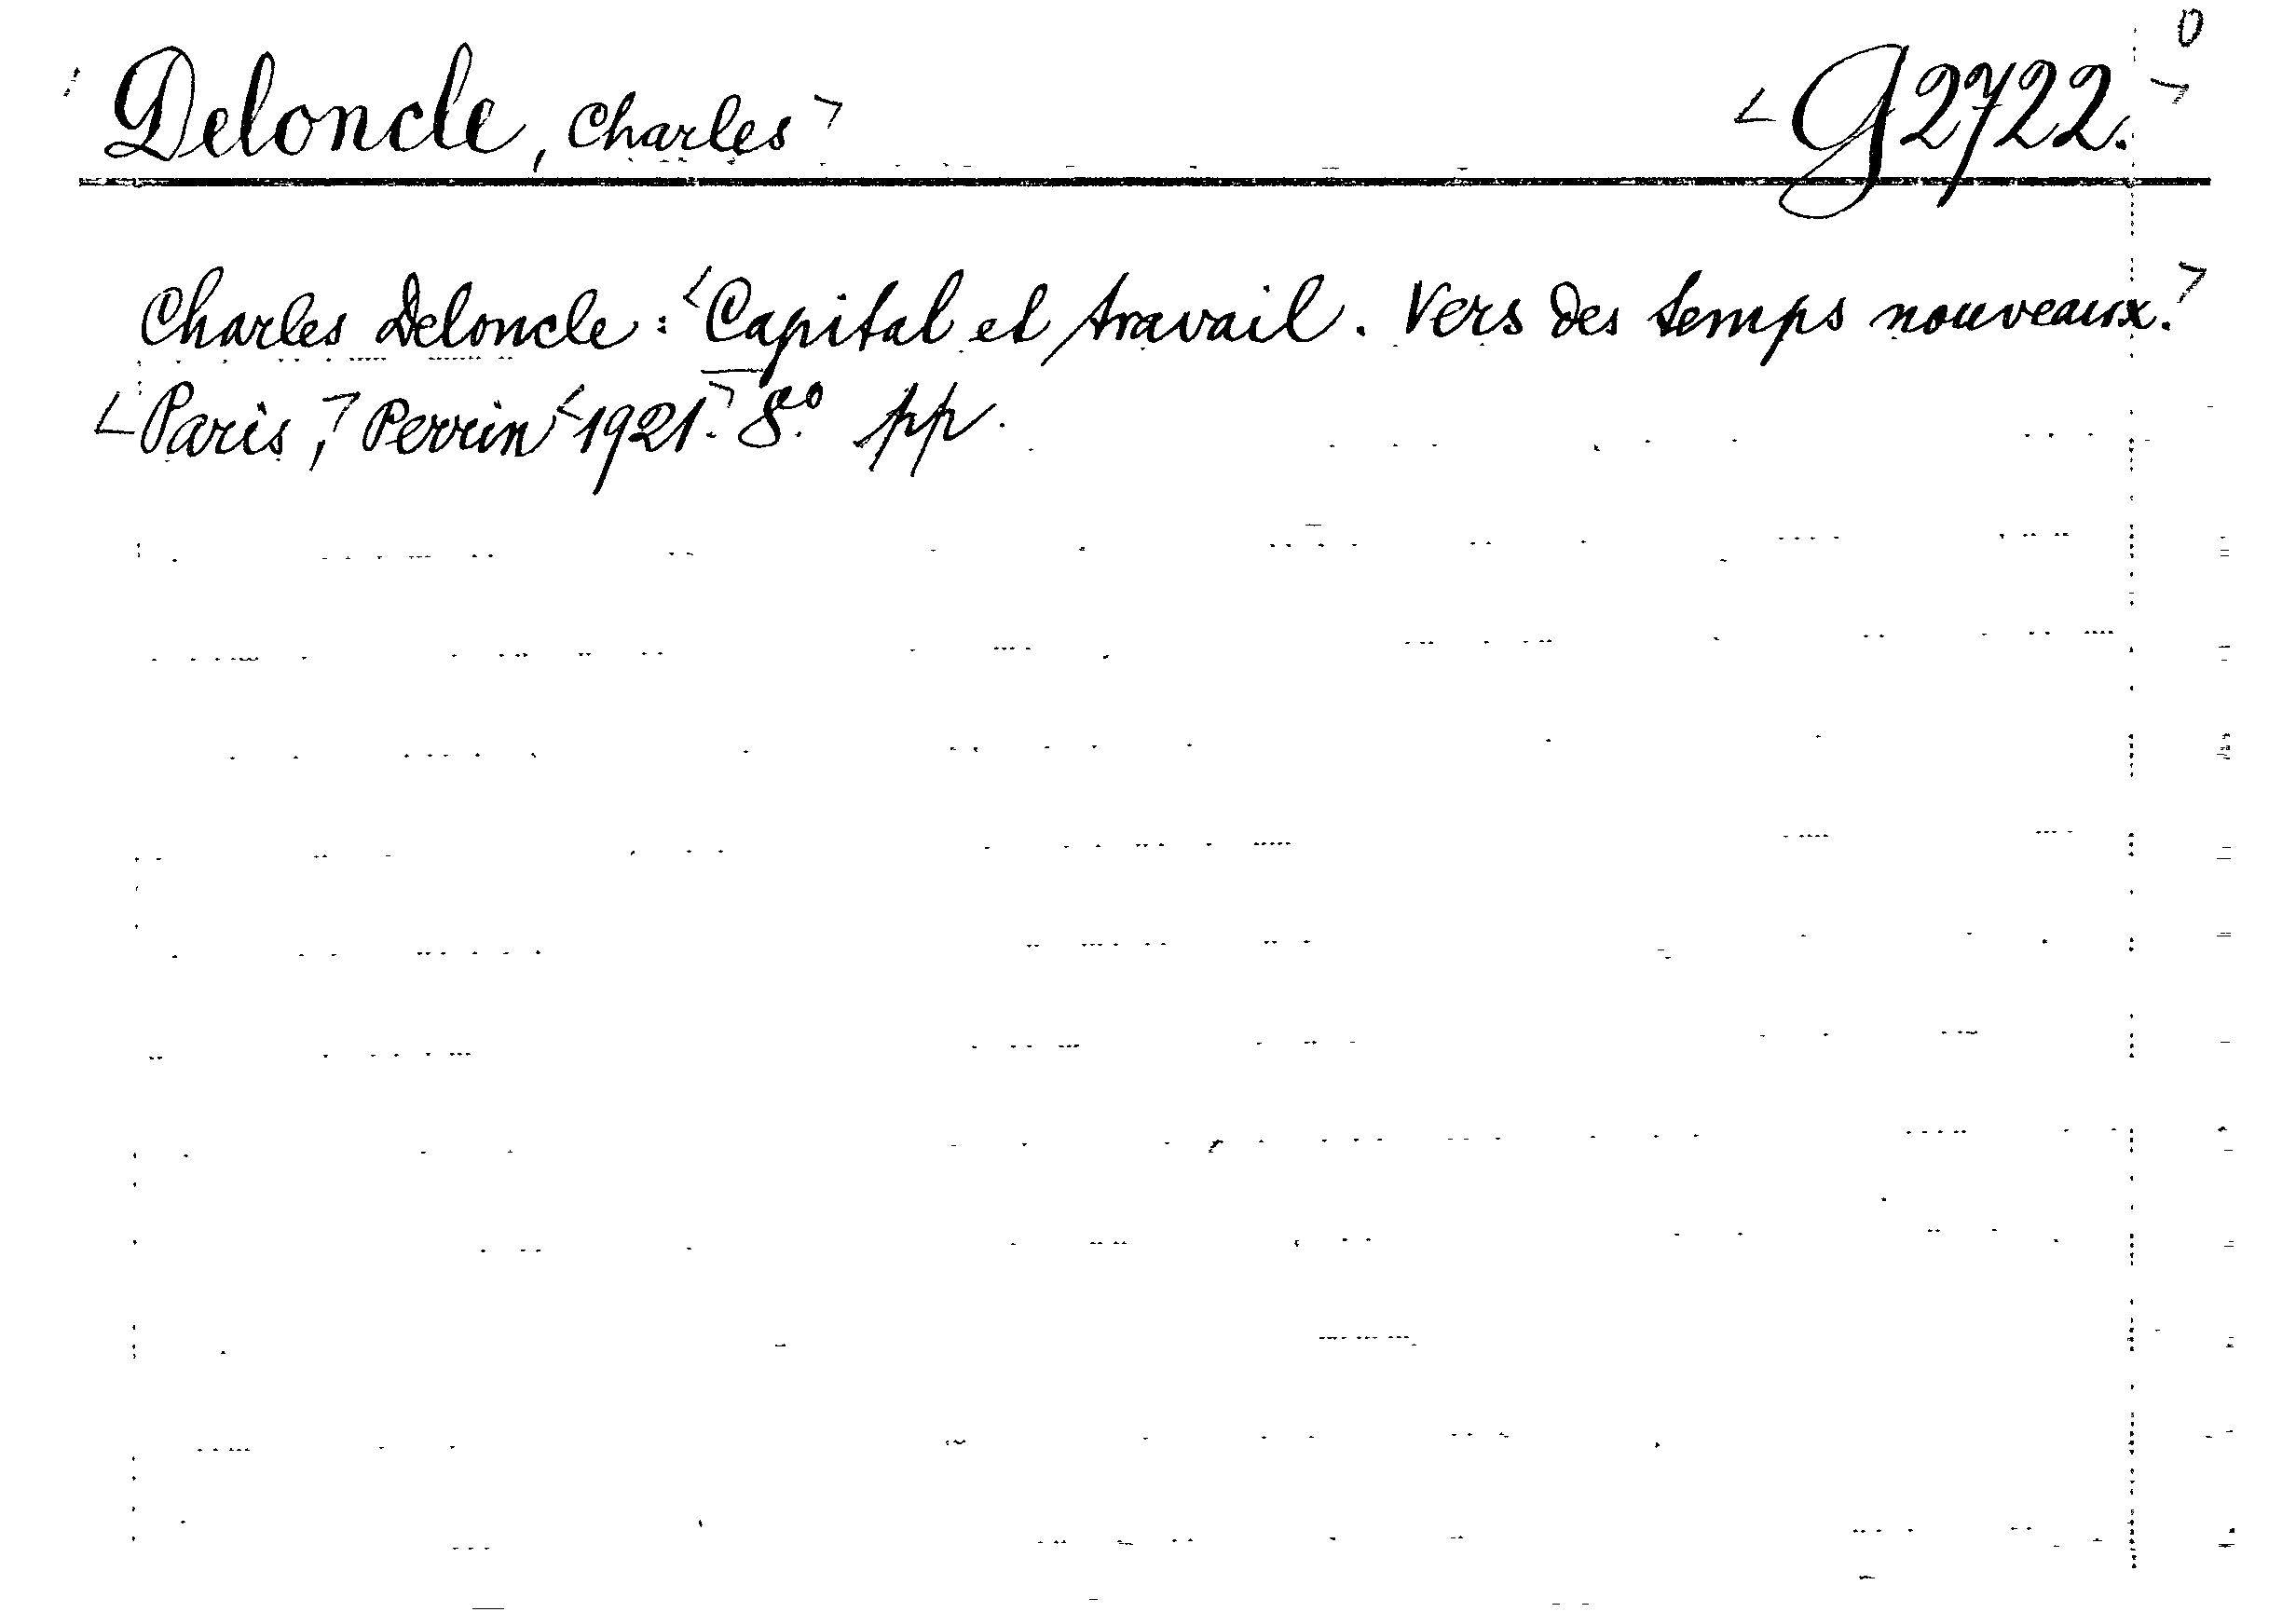 Deloncle, Charles G2722. 0
Charles Deloncle: Capital et travail. Vers des temps nouveaux.
Paris, Perrin 1921. 8º. pp.